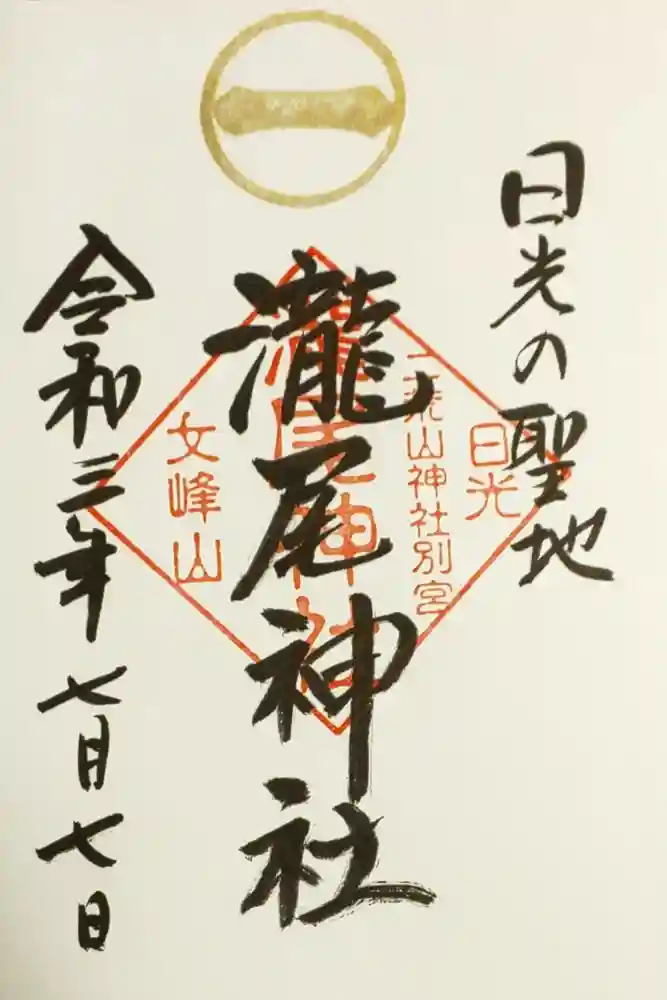 日光の聖地
日光
二荒山神社別宮
瀧尾神社
瀧尾神社
女峰山
令和三年七月七日